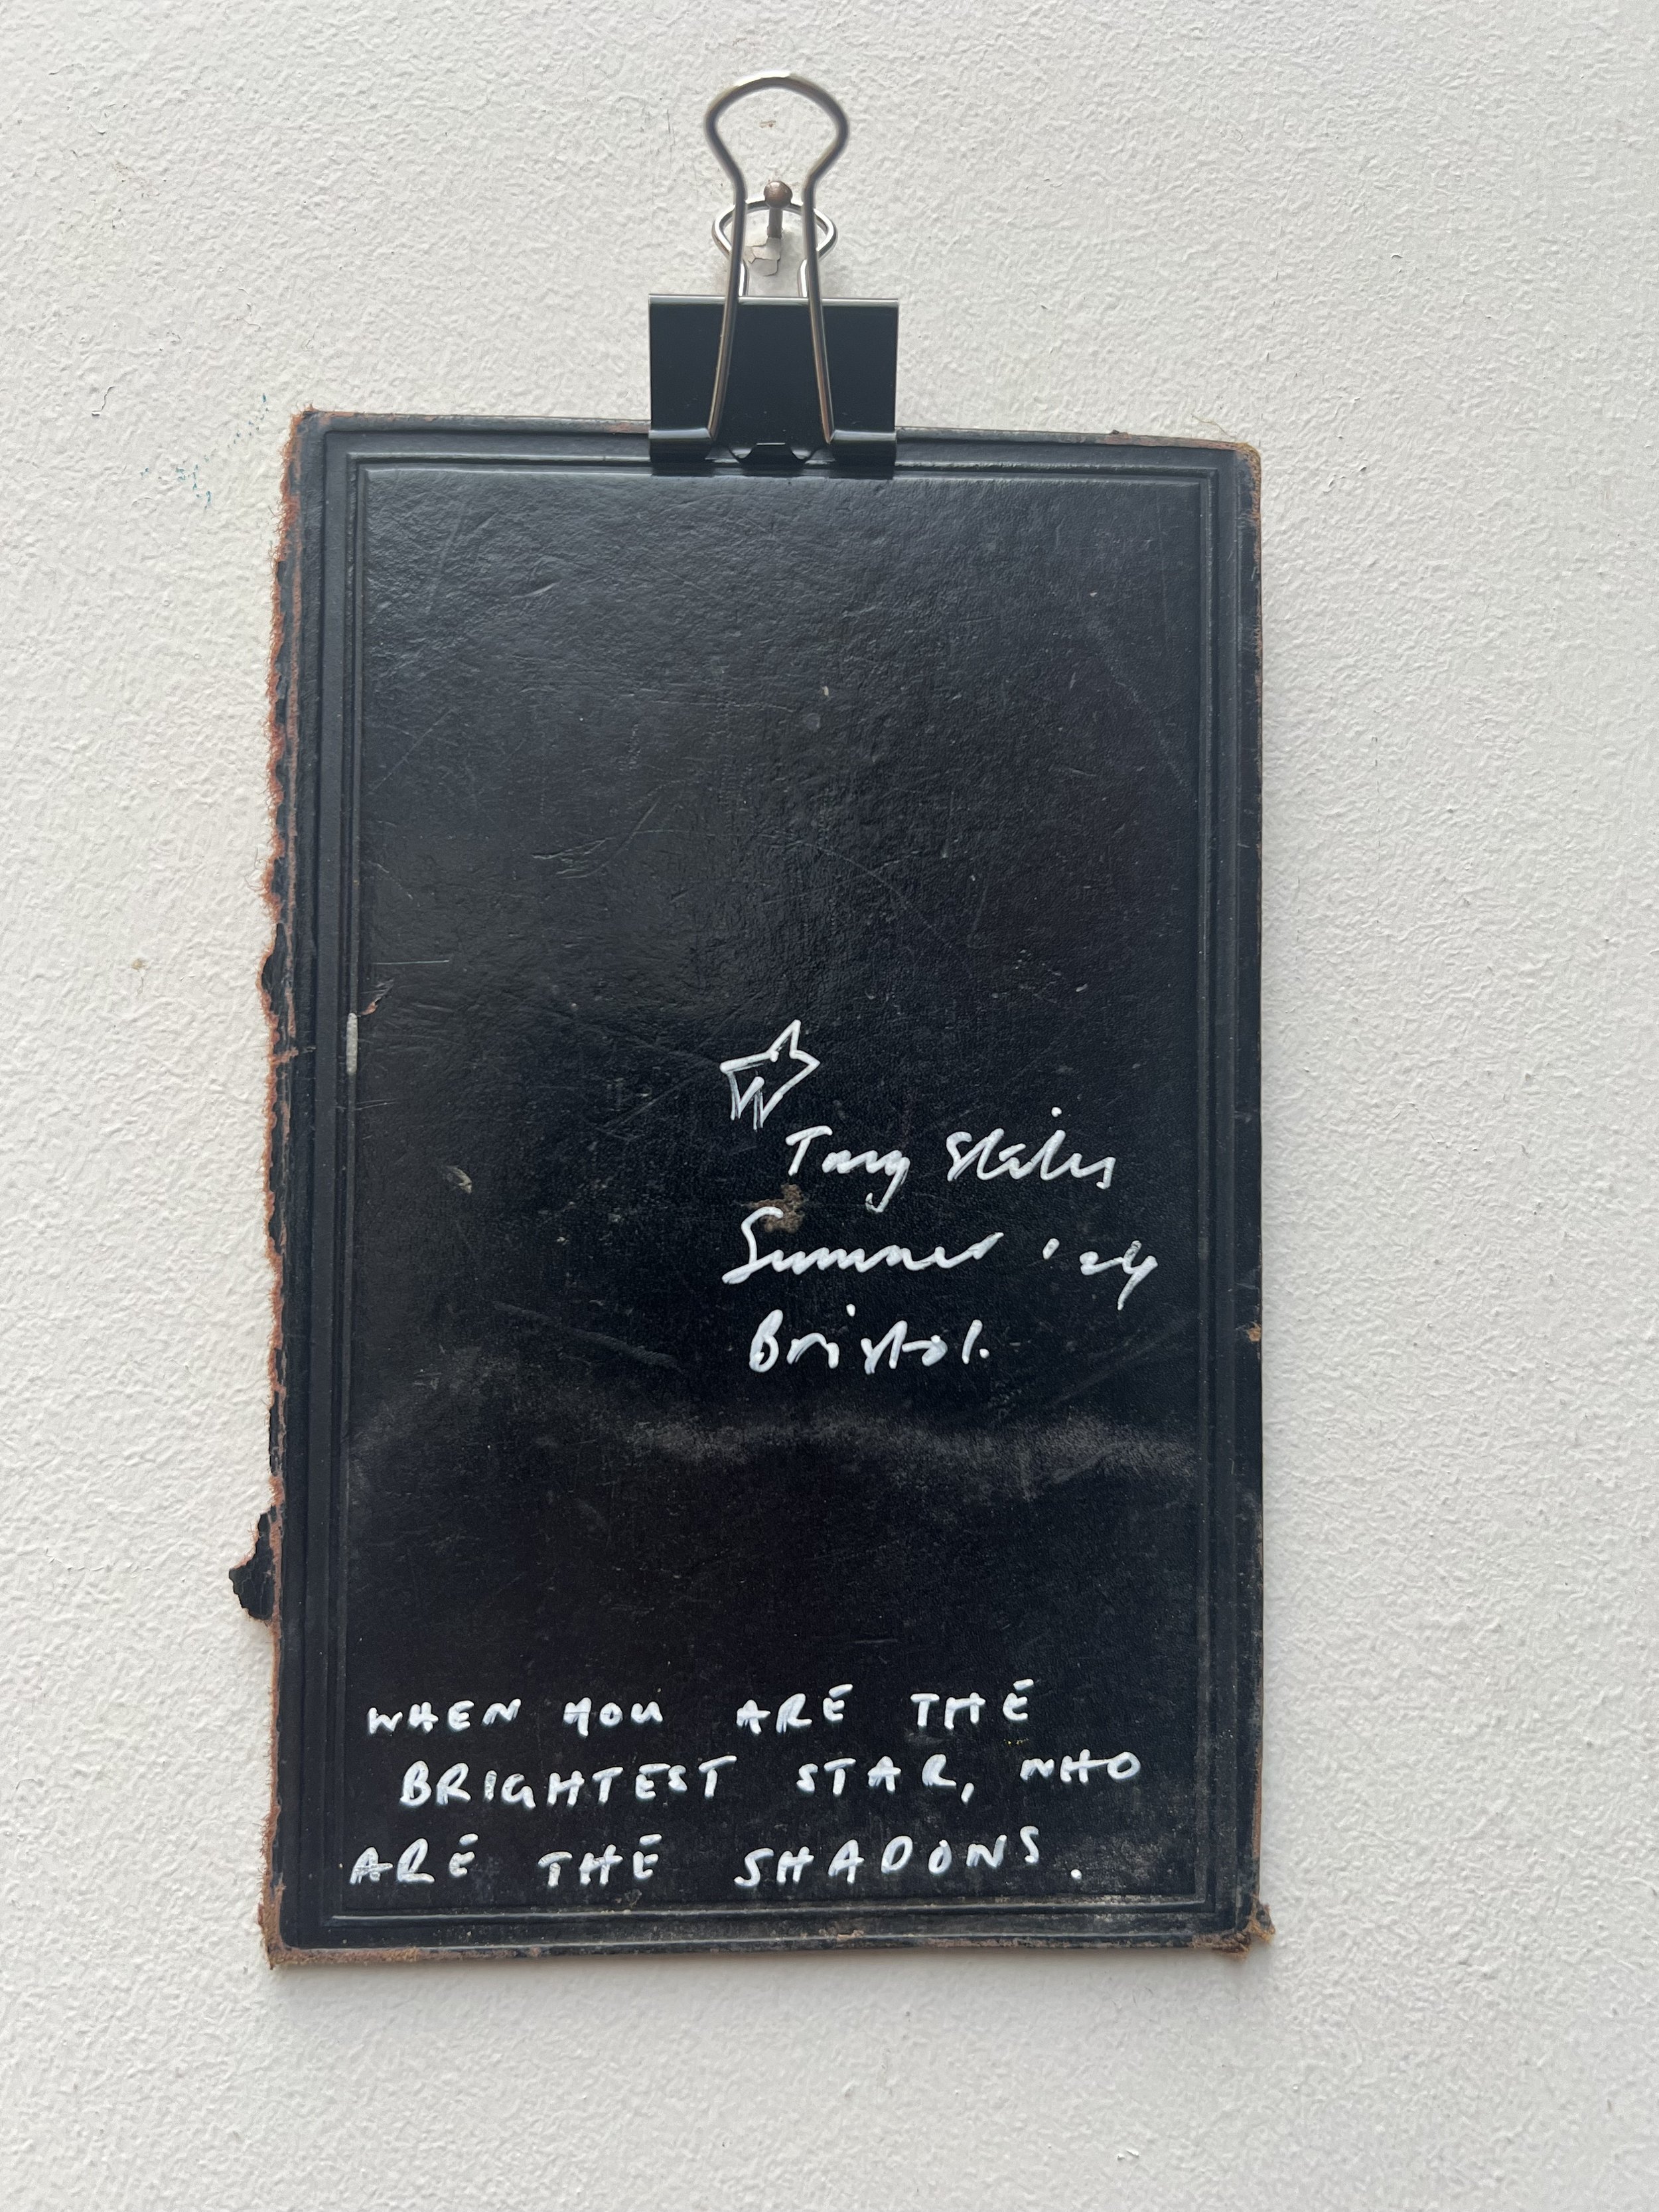 Summer '24
Bristol.
WHEN YOU ARE THE
BRIGHTEST STAR, WHO
ARE THE SHADOWS.